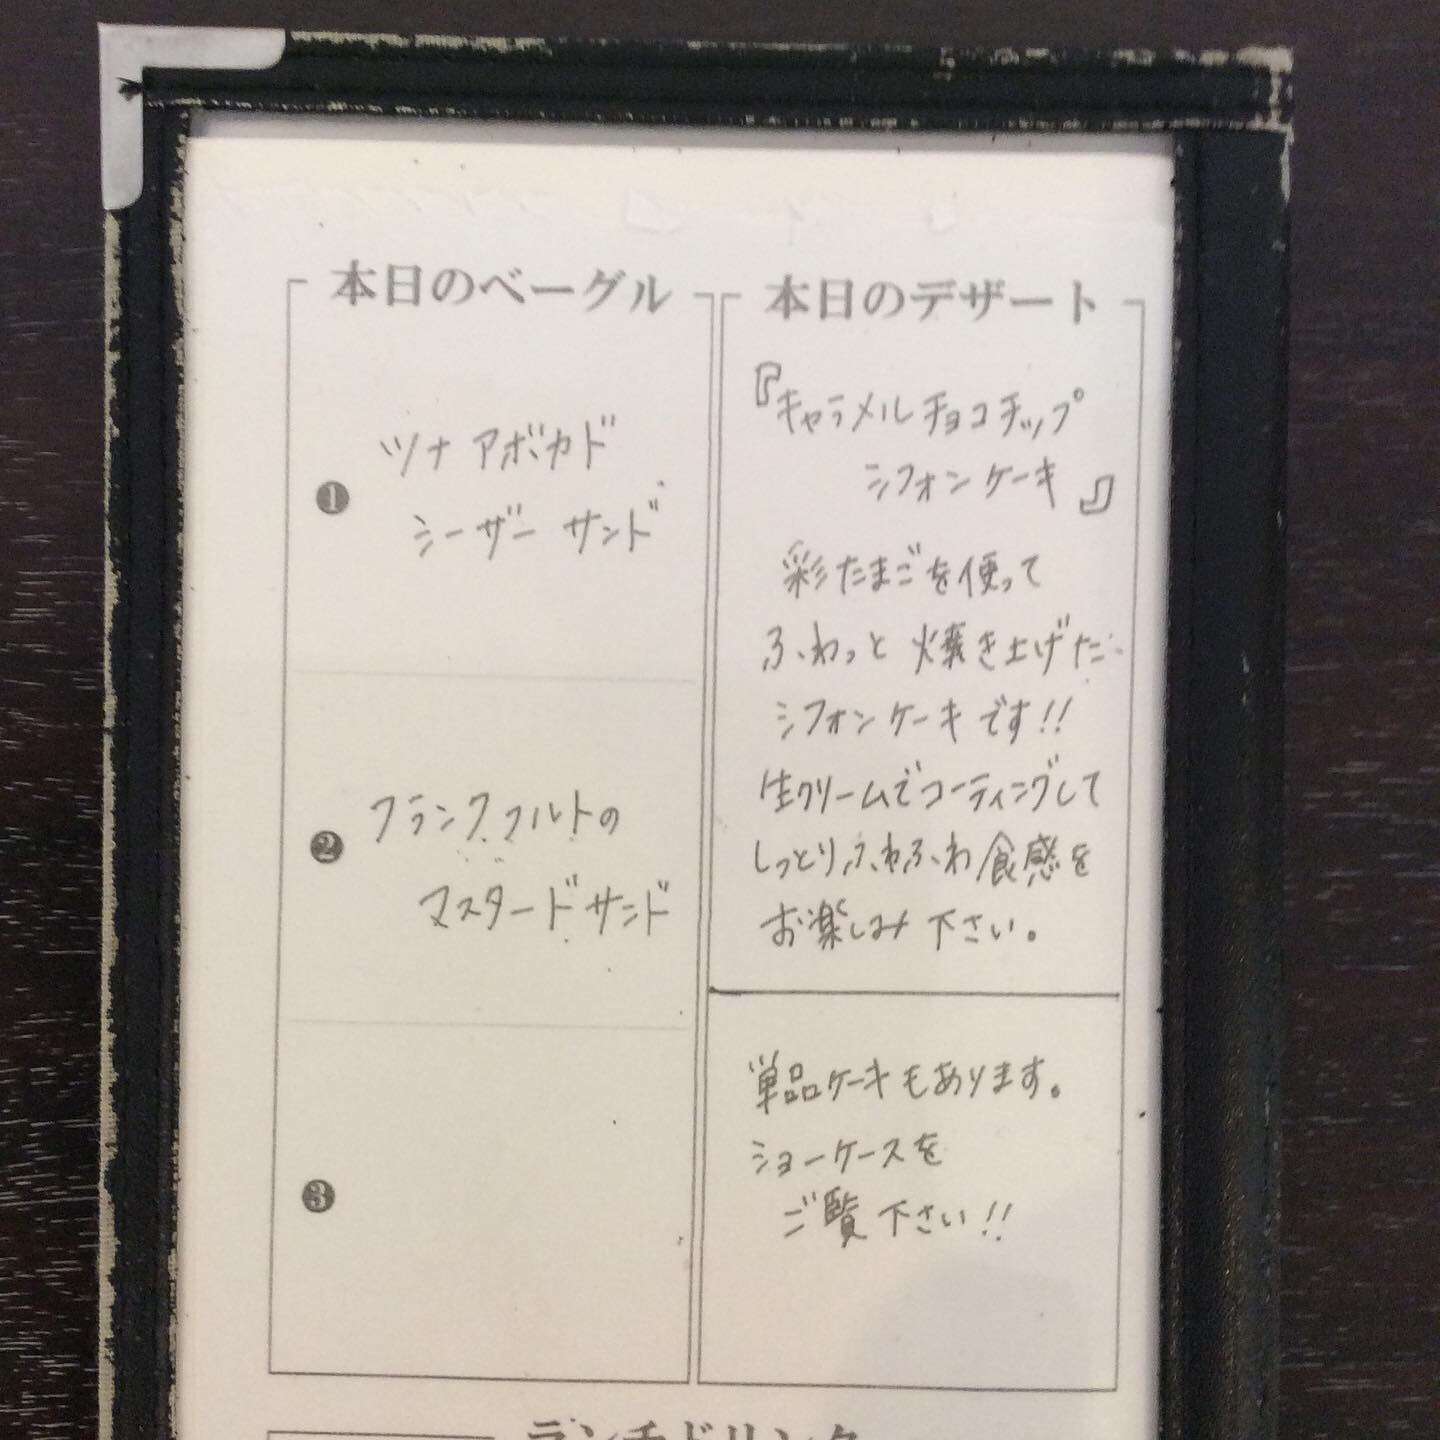 本日のベーグル
❶
ツナアボカド
シーザーサンド
❷
フランクフルトの
マスタードサンド
❸
本日のデザート
『キャラメルチョコチップ
シフォンケーキ』
彩たまごを使って
ふわっと焼き上げた
シフォンケーキです!!
生クリームでコーティングして
しっとりふわふわ食感を
お楽しみ下さい。
単品ケーキもあります。
ショーケースを
ご覧下さい!!
ランチドリンク